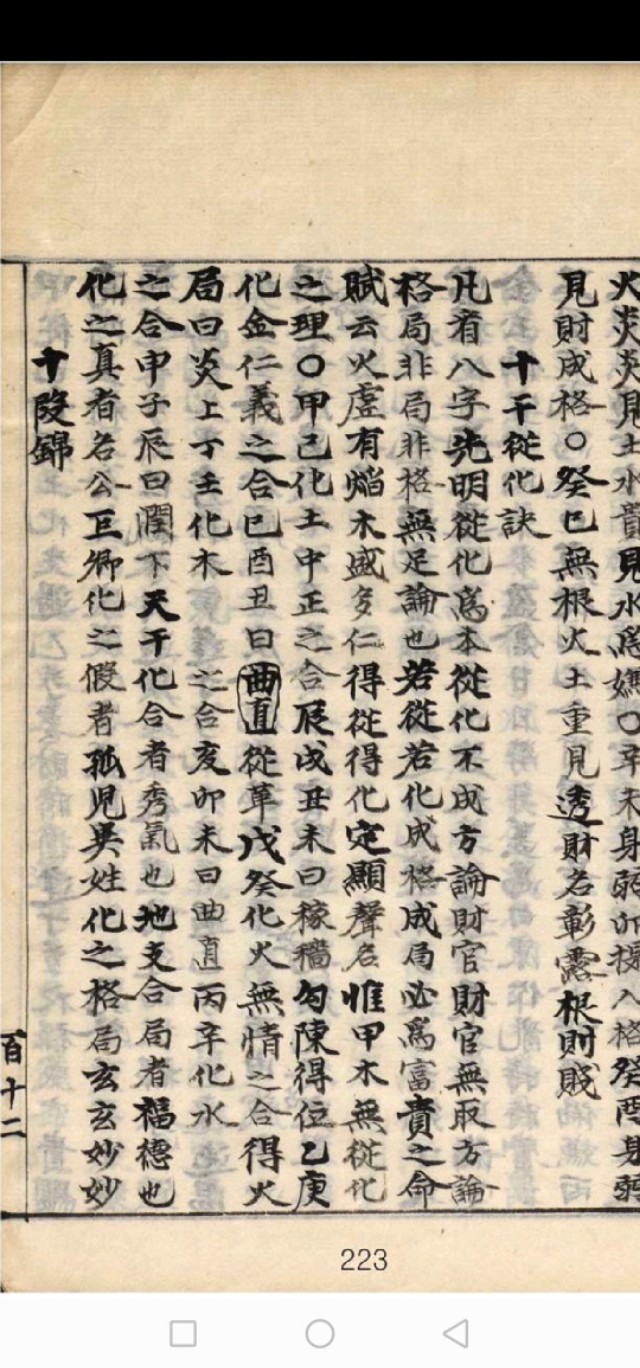 火炎炎見土水䪫見水爲嫣〇辛未身弱卯提入格癸酉身弱
見財成格〇癸巳無根火土重見透財名彰露根則賤
十干從化訣
凡看八字先明從化爲本從化不成方論財官財官無取方論
格局非局非格無足論也若從若化成格成局必爲富貴之命
賦云火虛有焰木盛多仁得從得化定顯聲名惟甲木無從化
之理〇甲己化土中正之合辰戌丑未曰稼穡勾陳得位乙庚
化金仁義之合巳酉丑曰曲直從革戊癸化火無情之合得火
局曰炎上丁壬化木 之合亥卯未曰曲直丙辛化水
之合申子辰曰潤下天干化合者秀氣也地支合局者福德也
化之真者名公巨卿化之假者孤兒異姓化之格局玄玄妙妙
十段錦
百十二
223